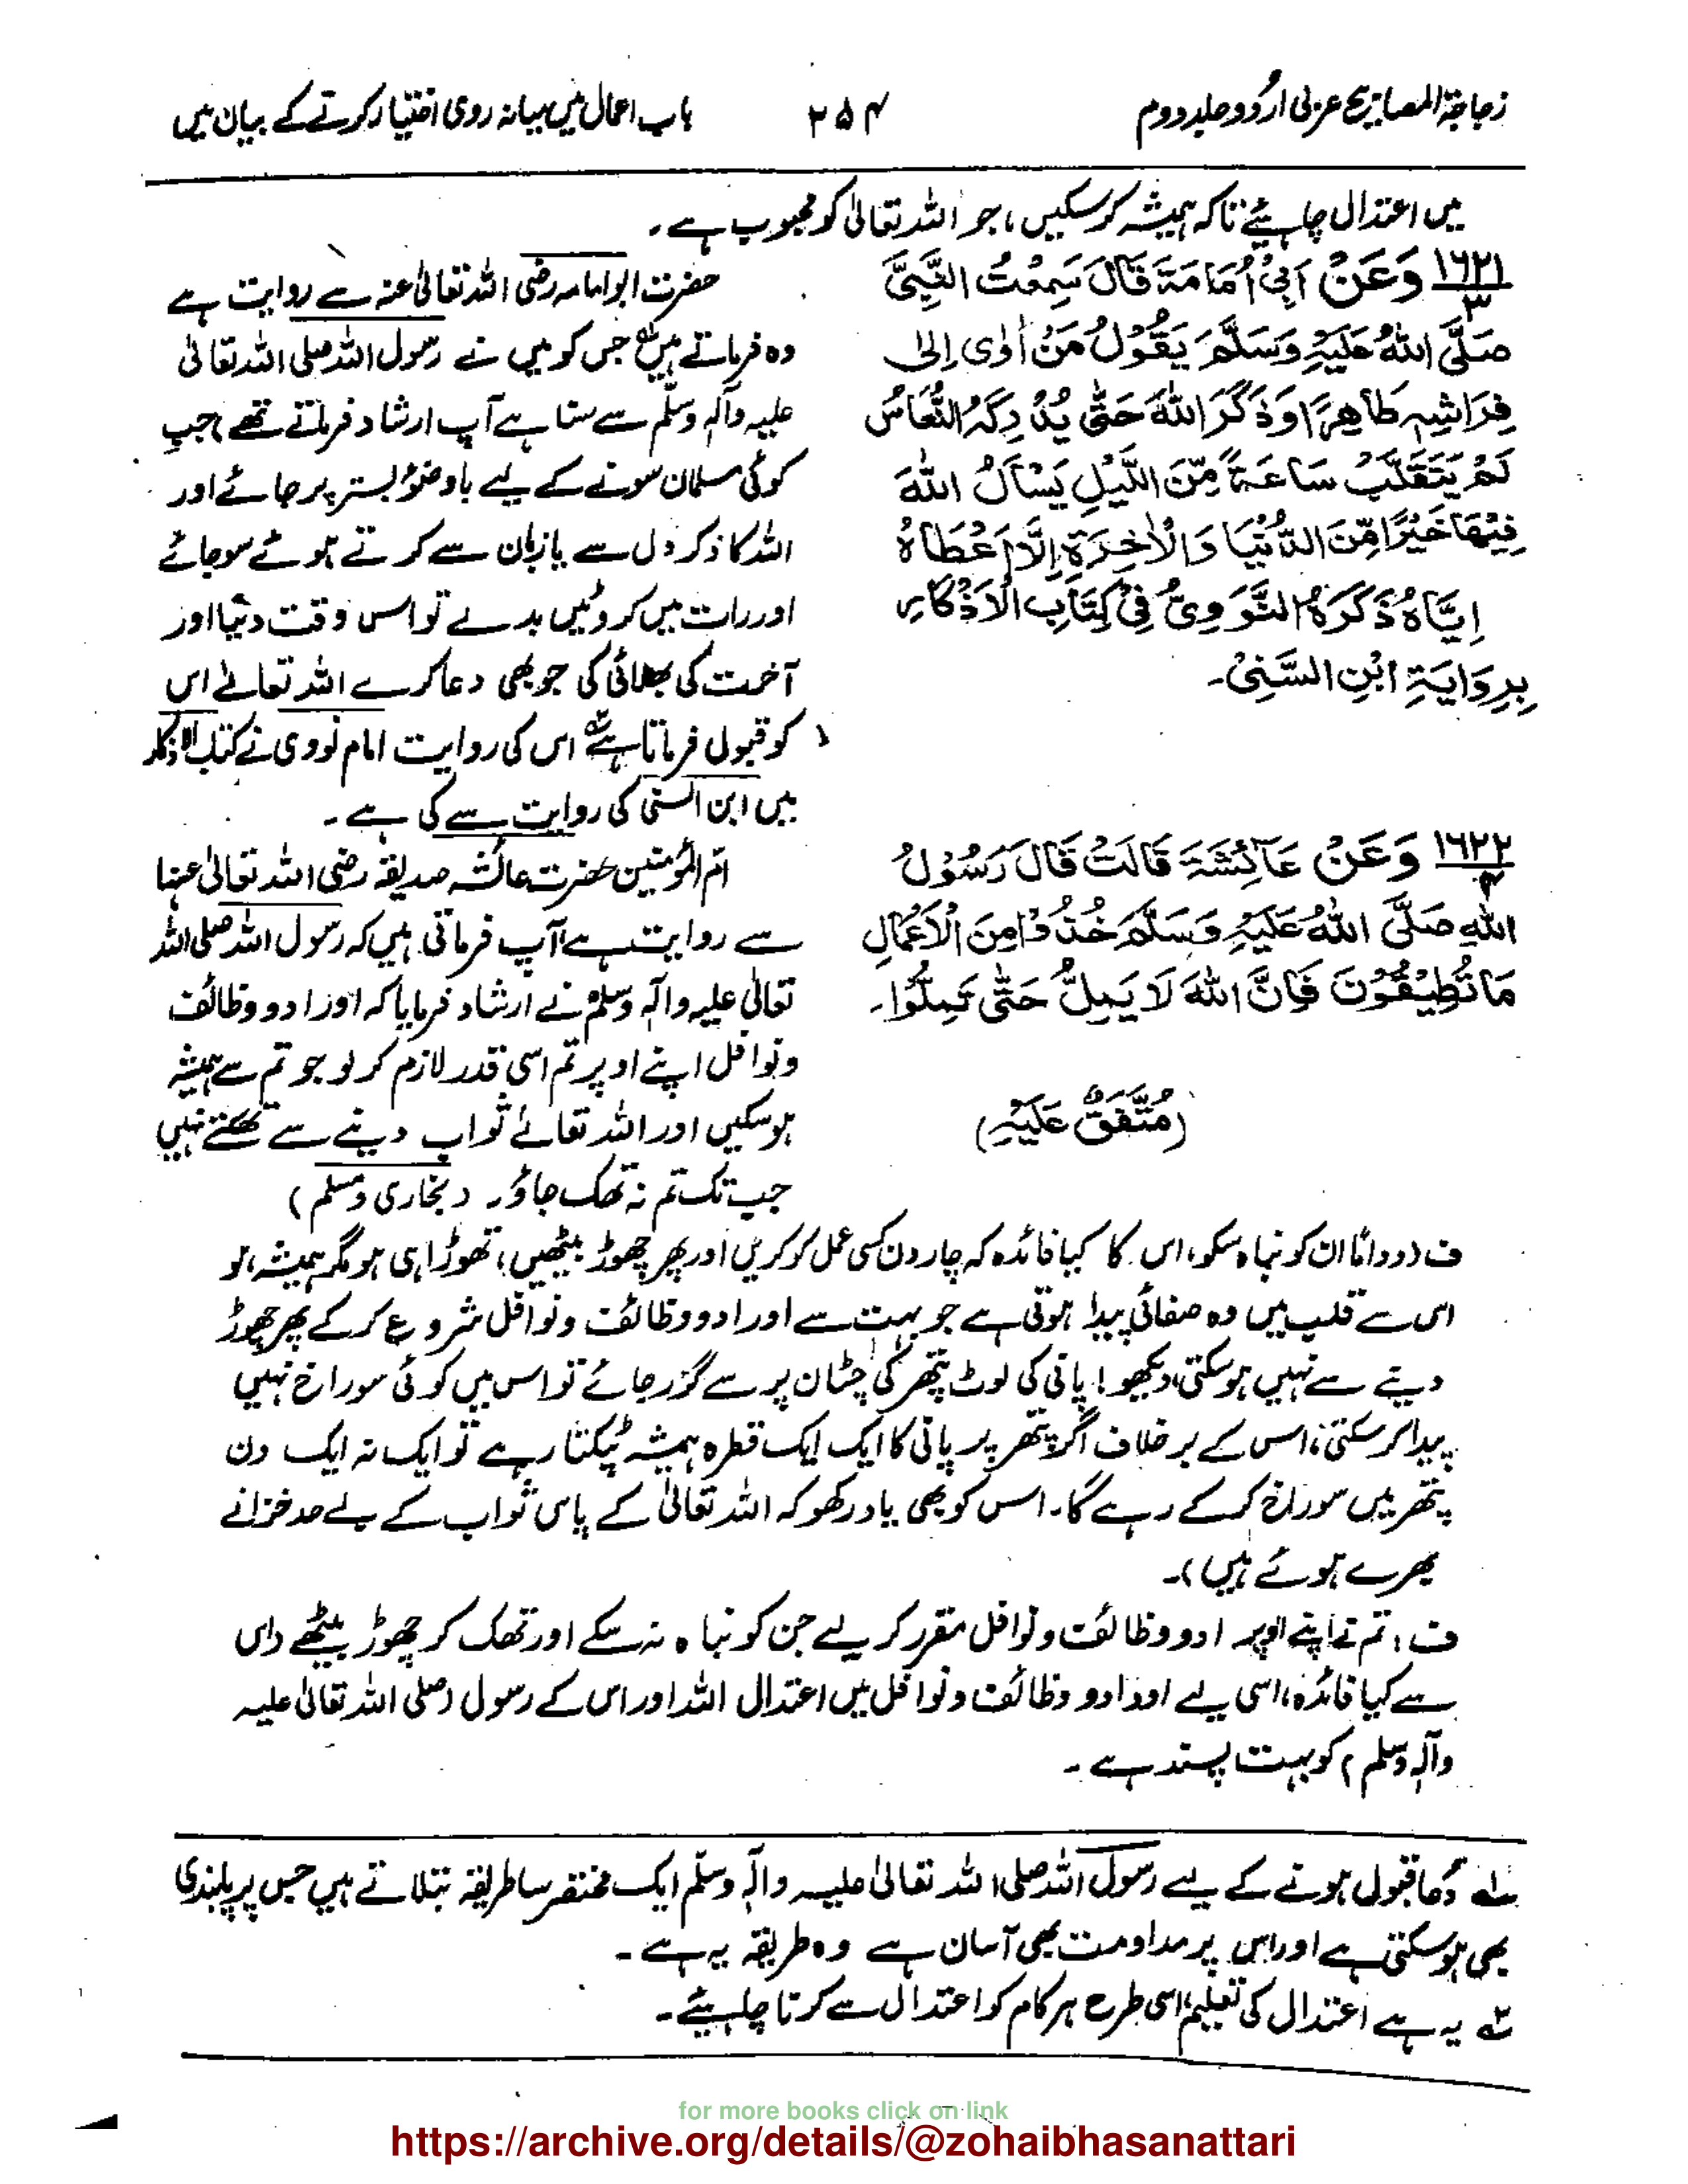 زجاجۃ المصابیح عربی اردو جلد دوم
۲۵۴
باب اعمال میں میانہ روی اختیار کرنے کے بیان میں
میں اعتدال چاہیئے تاکہ ہمیشہ کرسکیں، جو اللہ تعالیٰ کو محبوب ہے۔
۱۶۲۱/۳ وَعَنْ اَبِیْ اُمَامَةَ قَالَ سَمِعْتُ النَّبِیَّ
صَلَّى اللّٰهُ عَلَيْهِ وَسَلَّمَ يَقُوْلُ مَنْ اَوٰى اِلٰى
فِرَاشِهٖ طَاهِرًا وَذَكَرَ اللّٰهَ حَتّٰى يُدْرِكَهُ النُّعَاسُ
لَمْ يَتَقَلَّبْ سَاعَةً مِّنَ اللَّيْلِ يَسْأَلُ اللّٰهَ
فِيْهَا خَيْرًا مِّنَ الدُّنْيَا وَالْاٰخِرَةِ اِلَّا اَعْطَاهُ
اِيَّاهُ ذَكَرَهُ النَّوَوِىُّ فِىْ كِتَابِ الْاَذْكَارِ
بِرِوَايَةِ ابْنِ السُّنِىْ۔
حضرت ابوامامہ رضی اللہ تعالیٰ عنہ سے روایت ہے
وہ فرماتے ہیں جس کو میں نے رسول اللہ صلی اللہ تعالیٰ
علیہ وآلہ وسلم سے سنا ہے آپ ارشاد فرماتے تھے، جب
کوئی مسلمان سونے کے لیے باوضو بستر پر جائے اور
اللہ کا ذکر دل سے یا زبان سے کرتے ہوئے سوجائے
اور رات میں کروٹیں بدلے تو اس وقت دنیا اور
آخرت کی بھلائی کی جو بھی دعا کرے اللہ تعالےٰ اس
کو قبول فرماتا ہے۱ اس کی روایت امام نووی نے کتاب الاذکار
میں ابن السنی کی روایت سے کی ہے۔
۱۶۲۲/۴ وَعَنْ عَآئِشَةَ قَالَتْ قَالَ رَسُوْلُ
اللّٰهِ صَلَّى اللّٰهُ عَلَيْهِ وَسَلَّمَ خُذُوْا مِنَ الْاَعْمَالِ
مَا تُطِيْقُوْنَ فَاِنَّ اللّٰهَ لَا يَمِلُّ حَتّٰى تَمِلُّوْا۔
(مُتَّفَقٌ عَلَيْهِ)
ام المؤمنین حضرت عائشہ صدیقہ رضی اللہ تعالیٰ عنہا
سے روایت ہے آپ فرماتی ہیں کہ رسول اللہ صلی اللہ
تعالیٰ علیہ وآلہ وسلم نے ارشاد فرمایا کہ اورا دو وظائف
و نوافل اپنے اوپر تم اسی قدر لازم کر لو جو تم سے ہمیشہ
ہوسکیں اور اللہ تعالےٰ ثواب دینے سے تھکتے نہیں
جب تک تم نہ تھک جاؤ۔ (بخاری و مسلم)
ف (دوداً ان کو نباہ سکو، اس کا کیا فائدہ کہ چار دن کسی عمل کو کریں اور پھر چھوڑ بیٹھیں، تھوڑا ہی ہو مگر ہمیشہ ہو
اس سے قلب میں وہ صفائی پیدا ہوتی ہے جو بہت سے اورا دو وظائف و نوافل شروع کرکے پھر چھوڑ
دینے سے نہیں ہوسکتی، دیکھو! پانی کی لوٹ پتھر کی چٹان پر سے گزر جائے تو اس میں کوئی سوراخ نہیں
پیدا کرسکتی، اس کے برخلاف اگر پتھر پر پانی کا ایک ایک قطرہ ہمیشہ ٹپکتا رہے تو ایک نہ ایک دن
پتھر میں سوراخ کرکے رہے گا۔ اس کو بھی یاد رکھو کہ اللہ تعالیٰ کے پاس ثواب کے بے حد خزانے
بھرے ہوئے ہیں)۔
ف: تم نے اپنے اوپر ادو وظائف و نوافل مقرر کر لیے جن کو نباہ نہ سکے اور تھک کر چھوڑ بیٹھے (اس
سے کیا فائدہ، اسی لیے اورادو وظائف و نوافل میں اعتدال اللہ اور اس کے رسول (صلی اللہ تعالیٰ علیہ
وآلہ وسلم) کو بہت پسند ہے۔
۱ دُعا قبول ہونے کے لیے رسول اللہ صلی اللہ تعالیٰ علیہ وآلہ وسلم ایک مختصر سا طریقہ بتلاتے ہیں جس پر پابندی
بھی ہوسکتی ہے اور اس پر مداومت بھی آسان ہے وہ طریقہ یہ ہے۔
۲ یہ ہے اعتدال کی تعلیم، اسی طرح ہر کام کو اعتدال سے کرنا چاہیئے۔
for more books click on link
https://archive.org/details/@zohaibhasanattari